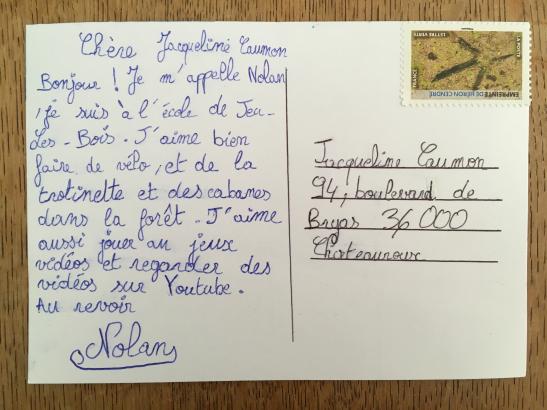 Chère Jacqueline Caumon
Bonjour ! Je m'appelle Nolan
, je suis à l'école de Jeu-
Les - Bois. J'aime bien
faire de vélo, et de la
trotinette et des cabanes
dans la forêt. J'aime
aussi jouer au jeux
vidéos et regarder des
vidéos sur Youtube.
Au revoir
Nolan
LETTRE VERTE
LA POSTE
FRANCE
EMPREINTE DE HÉRON CENDRÉ
Jacqueline Caumon
94, boulevard de
Bryas 36000
Chateauroux